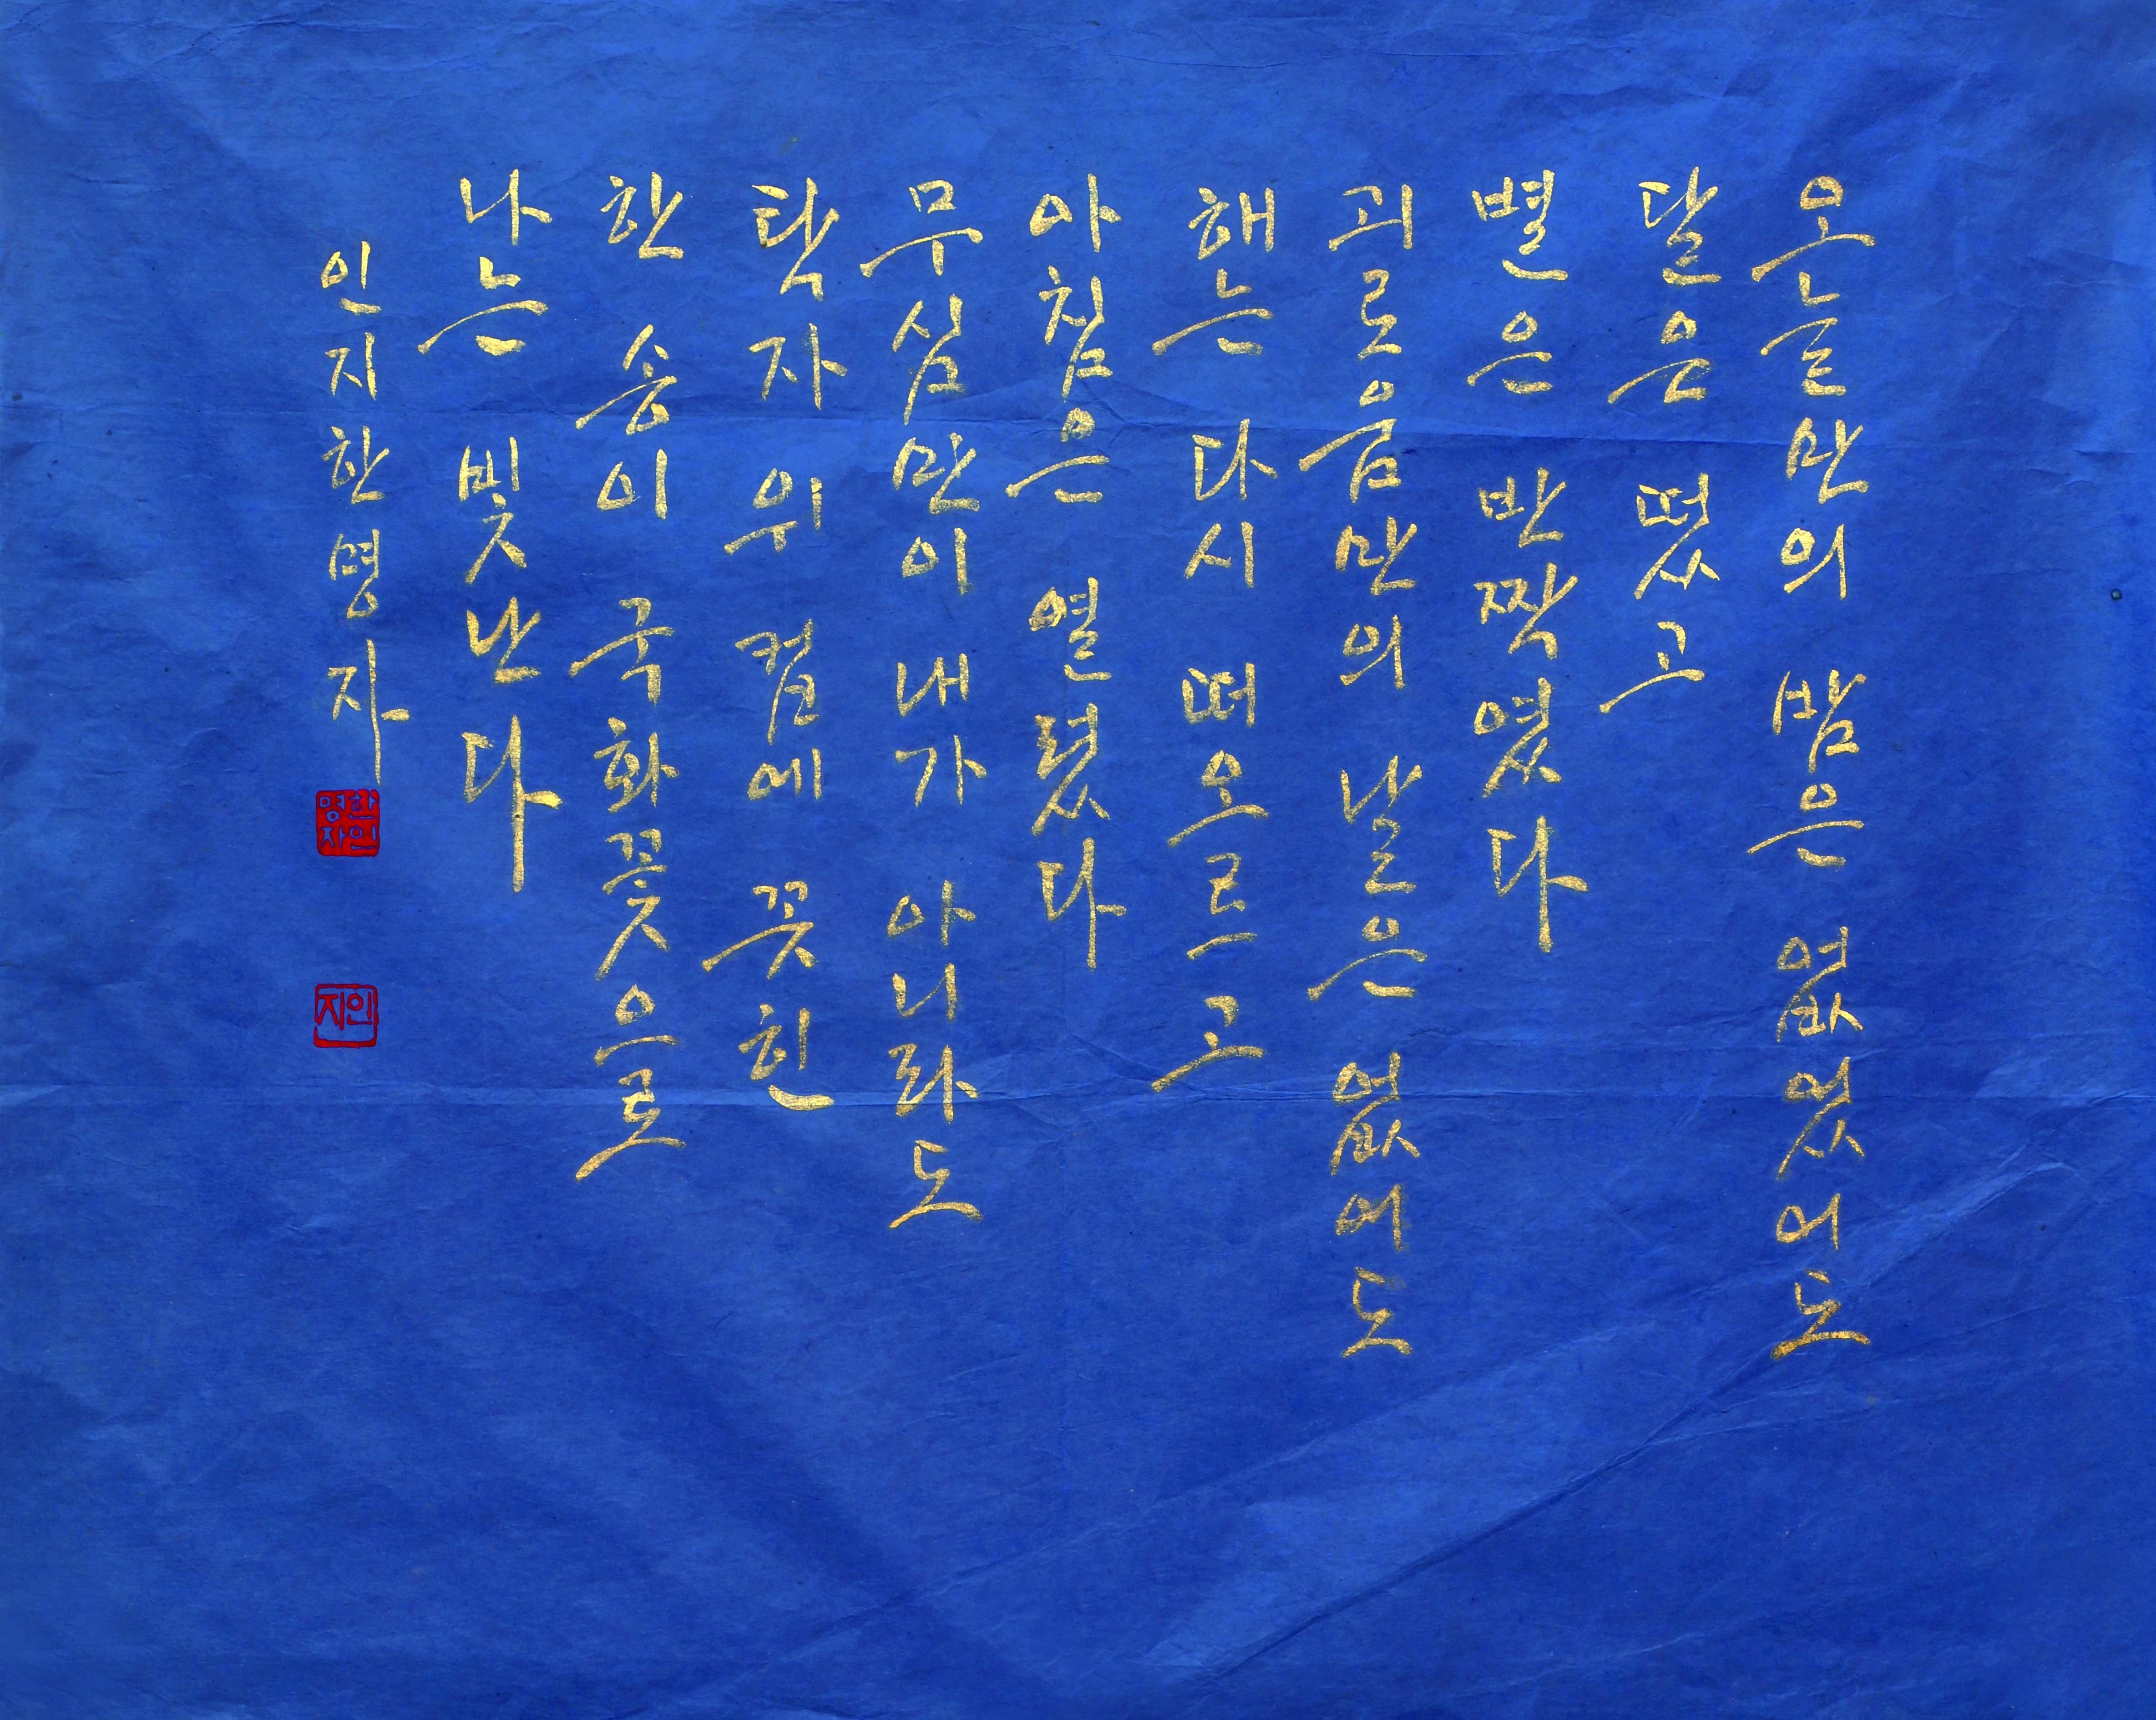 오늘만의 밤은 없었어도
달은 떴고
별은 반짝였다
괴로움만의 날은 없어도
해는 다시 떠오르고
아침은 열렸다
무심만이 내가 아니라도
탁자 위 컵에 꽂힌
한 송이 국화꽃으로
나는 빛난다
인지한명자
한인명자
인지